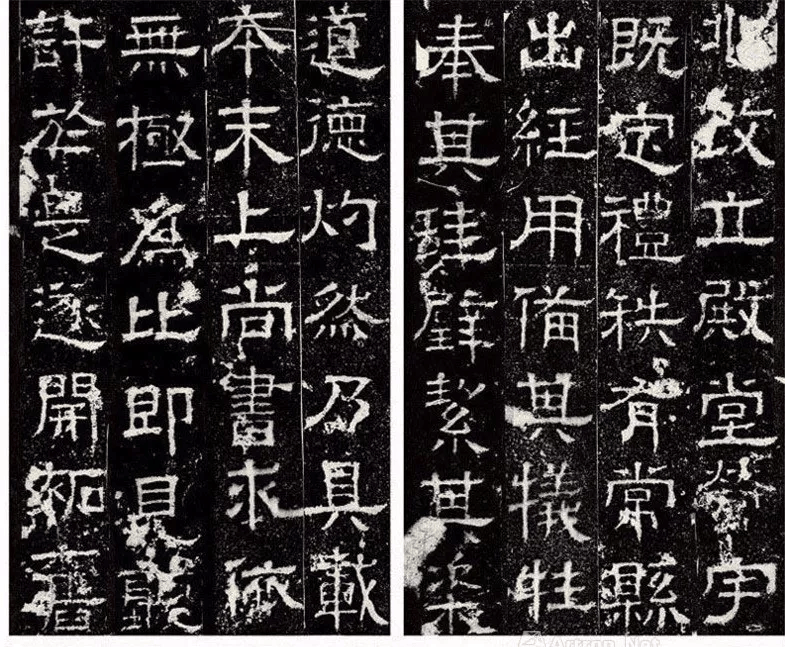 道德灼然乃具載
本末上尚書求依
無極為比即見聽
許於是遂開拓舊
兆改立殿堂營宇
既定禮秩有常縣
出經用備其犧牲
奉其珪璧絜其粢
Artron.Net